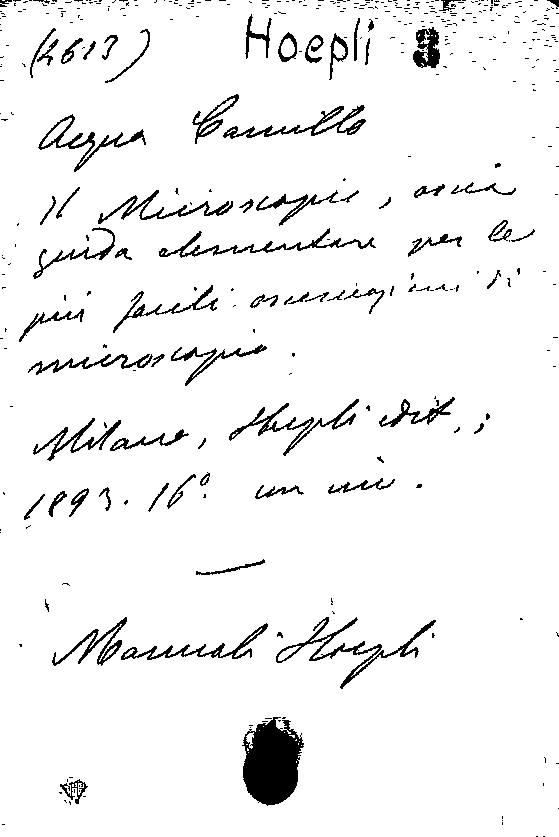 (2613) Hoepli 3
Acqua Camillo
Il Microscopio, ossia
guida elementare per le
più facili osservazioni di
microscopio.
Milano, Hoepli edit.;
1893. 16° un vol.
Manuali Hoepli